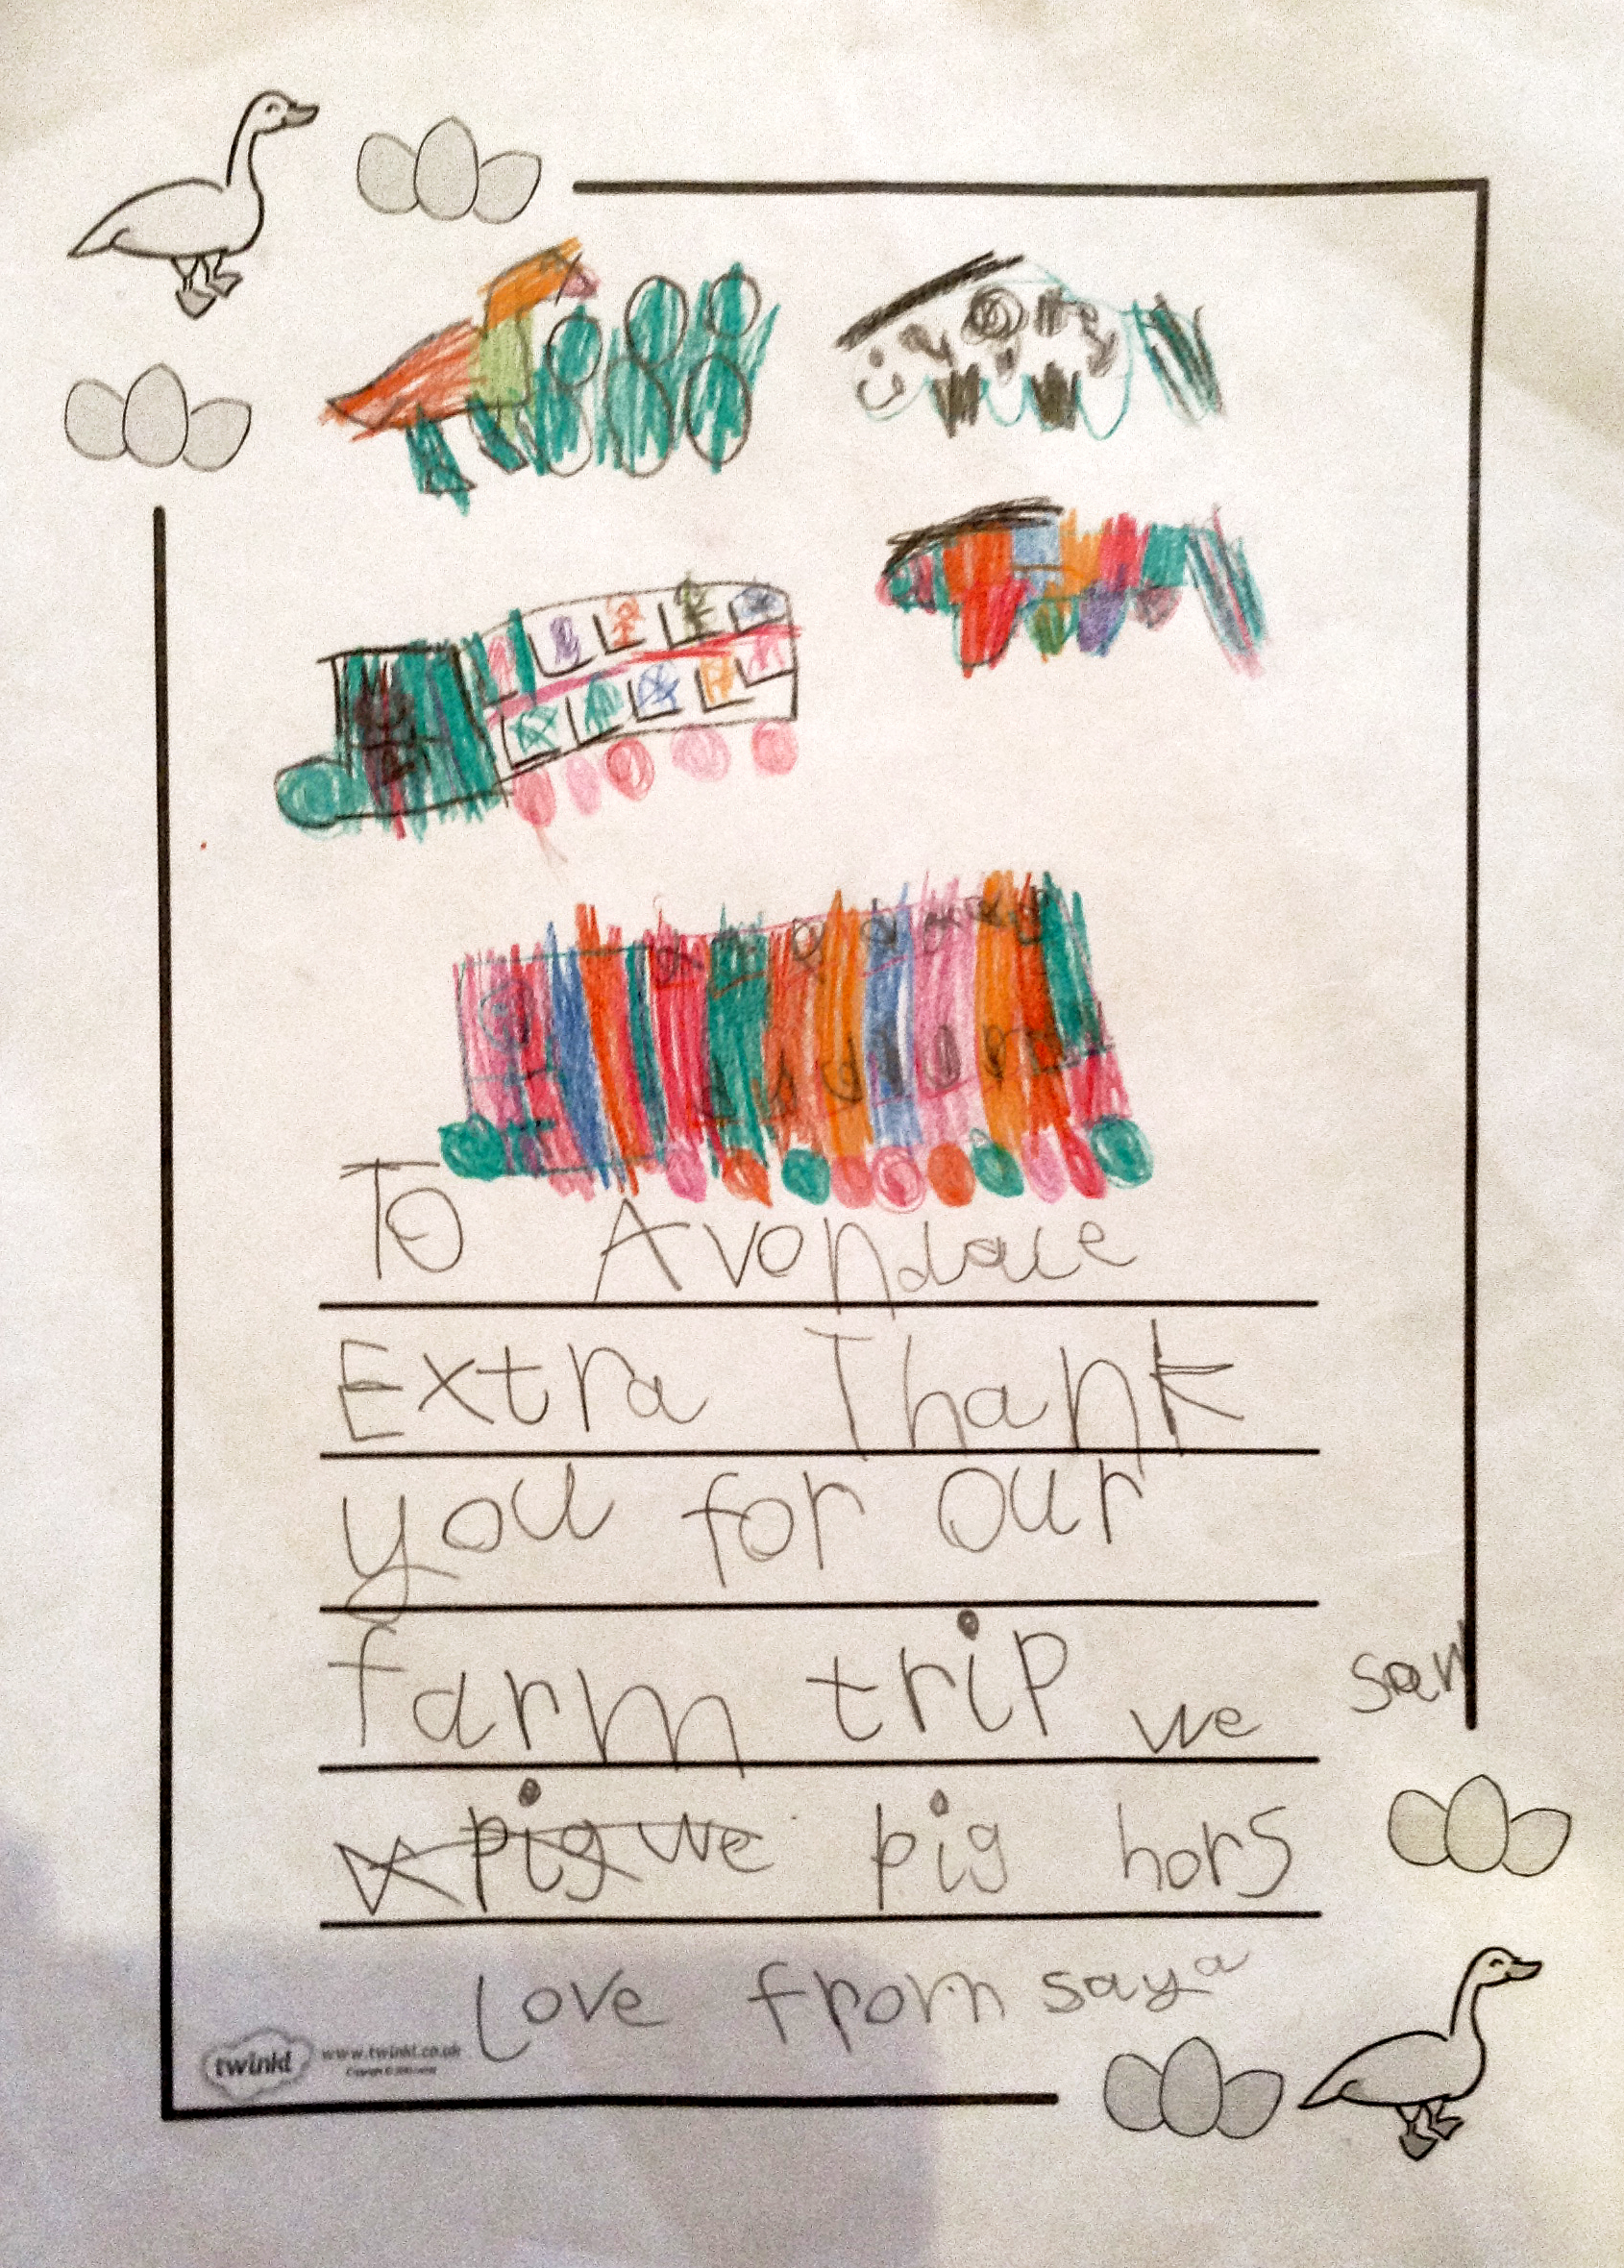 To Avondale
Extra Thank
you for our
farm trip we saw
pig we pig hors
love from saya
twinkl www.twinkl.co.uk